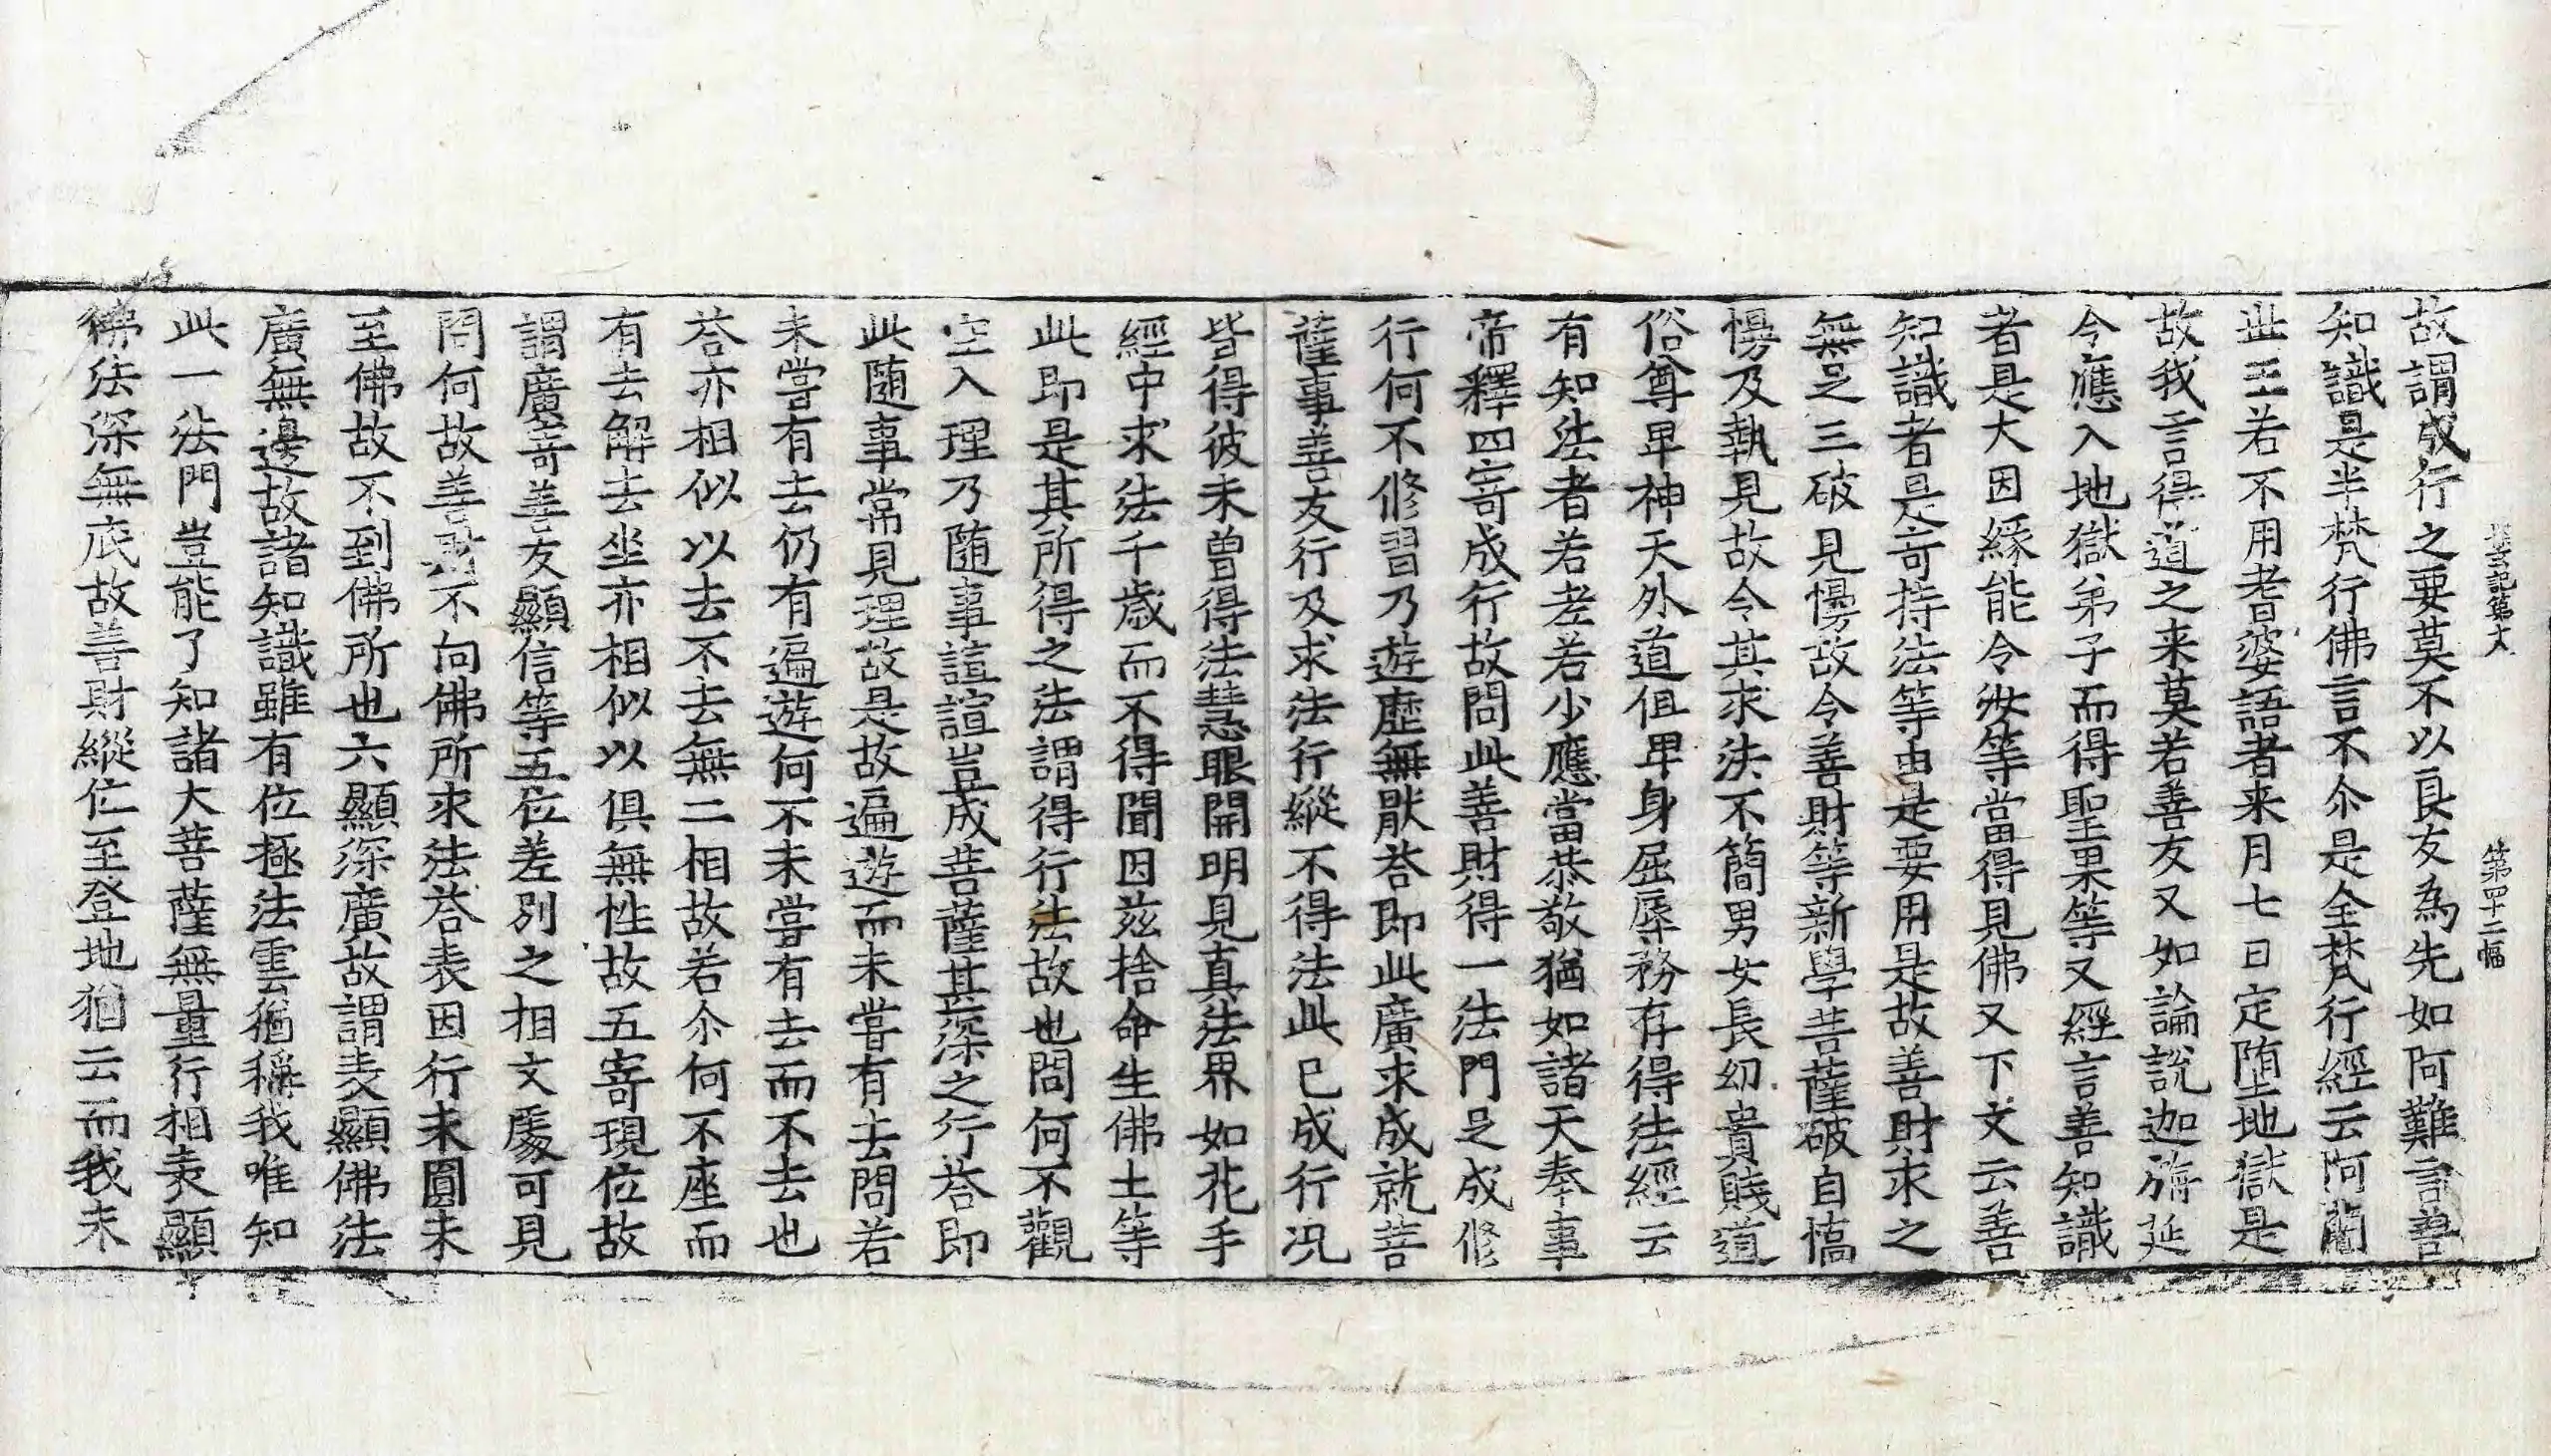 記第六 第四十二幅
故謂成行之要莫不以良友為先如阿難言善
知識是半梵行佛言不尒是全梵行經云阿闍
世王若不用耆婆語者来月七日定墮地獄是
故我言得道之来莫若善友又如論說迦旃延
令應入地獄弟子而得聖果等又經言善知識
者是大因緣能令汝等當得見佛又下文云善
知識者是奇持法等由是要用是故善財求之
無足三破見慢故令善財等新學菩薩破自憍
慢及執見故令其求法不簡男女長幼貴賤道
俗尊卑神天外道但卑身屈辱務存得法經云
有知法者若老若少應當恭敬猶如諸天奉事
帝釋四寄成行故問此善財得一法門足成修
行何不修習乃遊歷無猒荅即此廣求成就菩
薩事善友行及求法行縱不得法此已成行况
皆得彼未曾得法慧眼開明見真法界如花手
經中求法千歲而不得聞因茲捨命生佛土等
此即是其所得之法謂得行法故也問何不觀
空入理乃隨事諠諠豈成菩薩甚深之行荅即
此随事常見理故是故遍遊而未嘗有去問若
未嘗有去仍有遍遊何不未嘗有去而不去也
荅亦相似以去不去無二相故若尒何不座而
有去解去坐亦相似以俱無性故五寄現位故
謂廣寄善友顯信等五位差別之相文處可見
問何故善財不向佛所求法荅表因行未圓未
至佛故不到佛所也六顯深廣故謂表顯佛法
廣無邊故諸知識雖有位極法雲猶稱我唯知
此一法門豈能了知諸大菩薩無量行相表顯
佛法深無底故善財縱位至登地猶云而我未